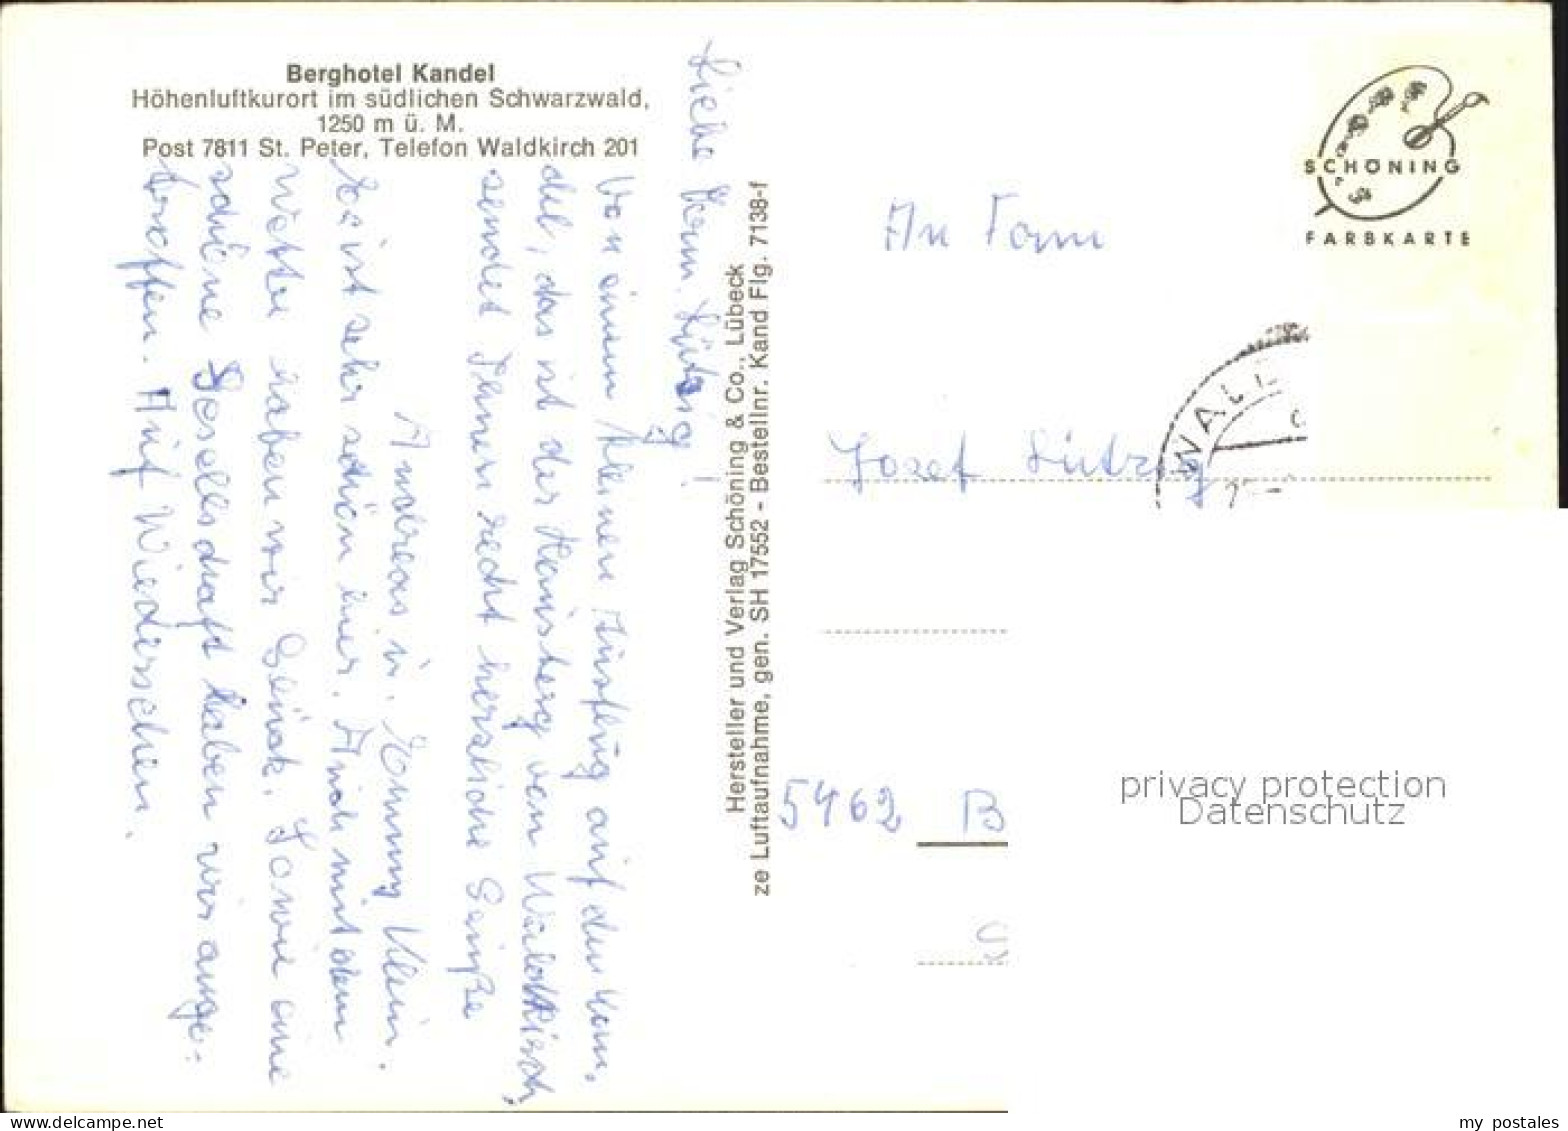 Berghotel Kandel
Höhenluftkurort im südlichen Schwarzwald,
1250 m ü. M.
Post 7811 St. Peter, Telefon Waldkirch 201
Liebe Fam. Lützig!
Von einem kleinen Ausflug auf den Kan-
del, das ist der Hausberg von Waldkirch,
sendet Ihnen recht herzliche Grüße
Andreas u. Emmy Klein.
Es ist sehr schön hier. Auch mit dem
Wetter haben wir Glück. Sowie eine
schöne Gesellschaft haben wir ange-
troffen. Auf Wiedersehen.
Hersteller und Verlag Schöning & Co., Lübeck
ze Luftaufnahme, gen. SH 17552 - Bestellnr. Kand Flg. 7138-f
SCHÖNING
FARBKARTE
WALD
An Fam
Josef Lützig
5462 B
privacy protection
Datenschutz
www.delcampe.net
my_postales